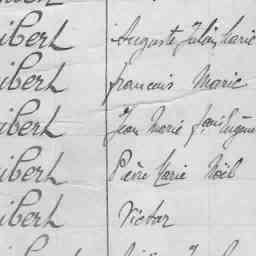 ibert Auguste Julien Marie
ibert francois Marie
ibert Jean Marie Eugène
ibert Pierre Marie Noël
ibert Victor